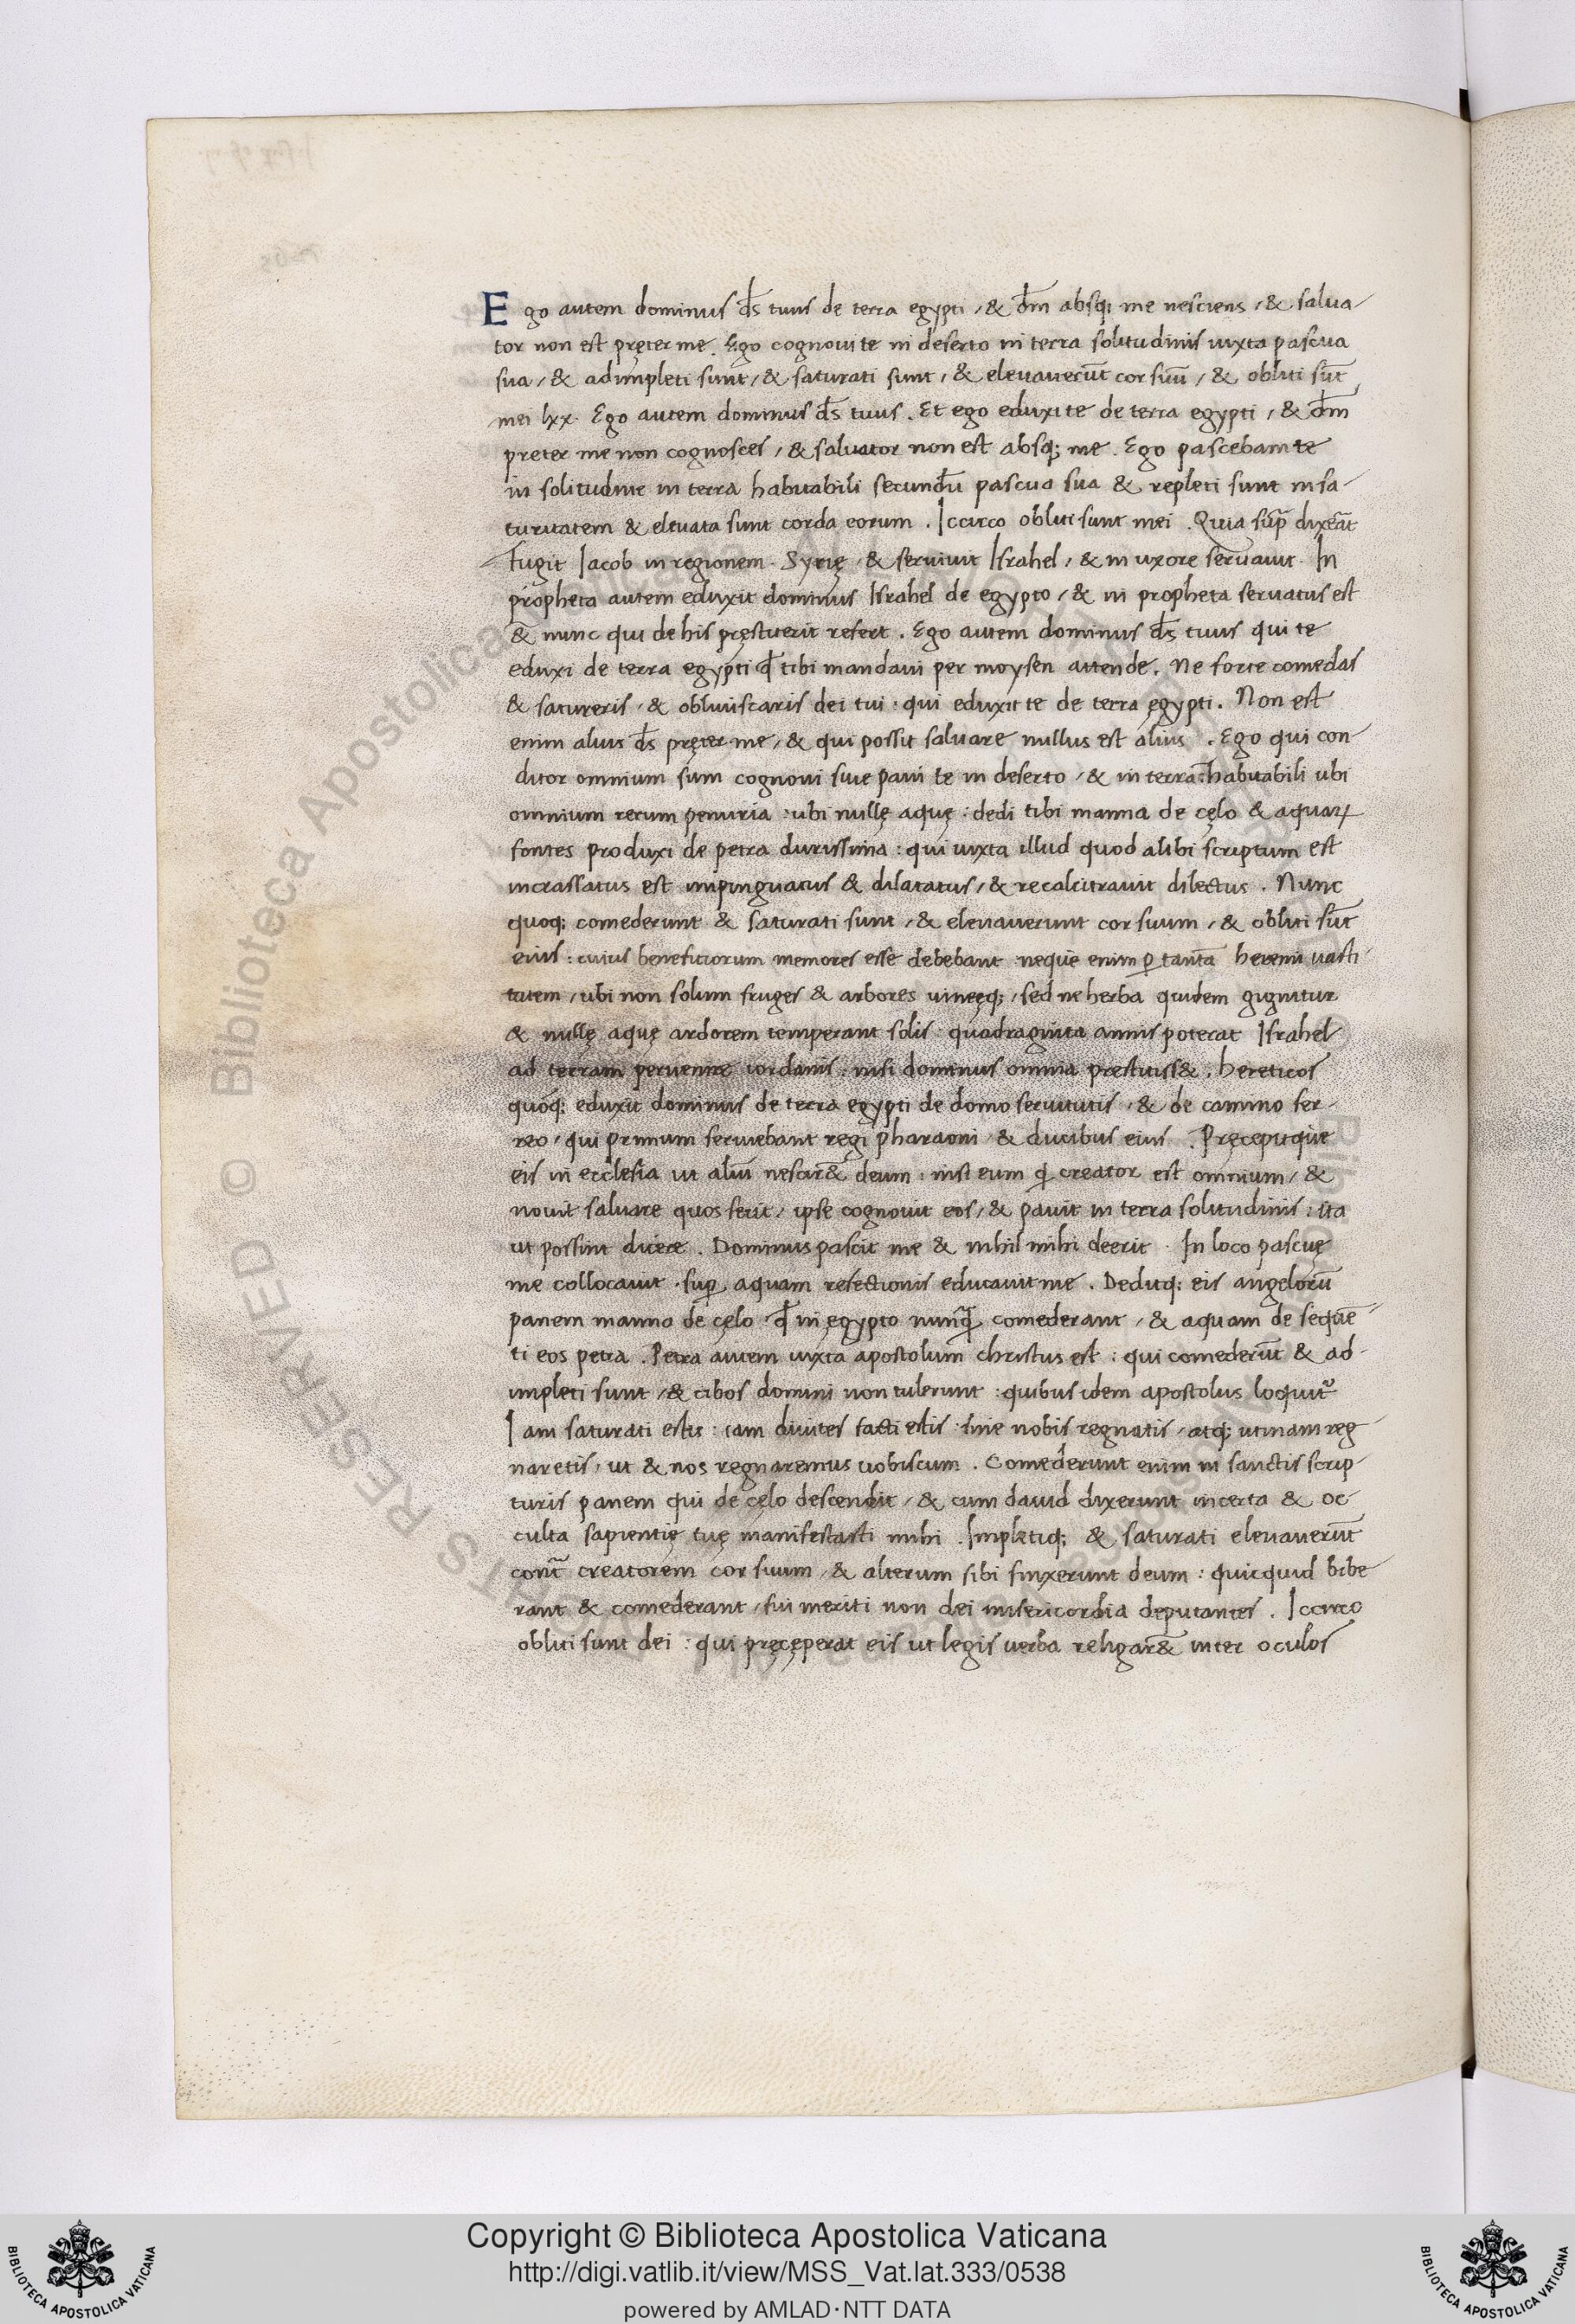 Ego autem dominus d̄s tuus de terra egypti, & d̄m absq; me nesciens, & salua-
tor non est pręter me. Ego cognoui te in deserto in terra solitudinis iuxta pascua
sua, & adimpleti sunt, & saturati sunt, & eleuauerūt cor suū, & obliti sūt
mei lxx. Ego autem dominus d̄s tuus. Et ego eduxi te de terra egypti, & d̄m
preter me non cognosces, & saluator non est absq; me. Ego pascebam te
in solitudine in terra habitabili secundū pascua sua & repleti sunt in sa-
turitatem & eleuata sunt corda eorum. Iccirco obliti sunt mei. Quia suꝑ dixerāt
Fugit Iacob in regionem Syrię & seruiuit Israhel, & in uxore seruauit. In
propheta autem eduxit dominus Israhel de egypto, & in propheta seruatus est
& nunc qui de his pręstiterit refert. Ego autem dominus d̄s tuus qui te
eduxi de terra egypti qđ tibi mandaui per moysen attende. Ne forte comedas
& satureris, & obliuiscaris dei tui. qui eduxit te de terra ęgypti. Non est
enim alius d̄s pręter me, & qui possit saluare nullus est alius. Ego qui con
ditor omnium sum cognoui siue paui te in deserto, & in terra habitabili ubi
omnium rerum penuria: ubi nullę aquę: dedi tibi manna de cęlo & aquaꝝ
fontes produxi de petra durissima: qui iuxta illud quod alibi scriptum est
incrassatus est impinguatus & dilatatus, & recalcitrauit dilectus. Nunc
quoq; comederunt & saturati sunt, & eleuauerunt cor suum, & obliti sūt
eius: cuius beneficiorum memores esse debebant neque enim ꝑ tantā heremi uasti-
tatem, ubi non solum fruges & arbores uineęq;, sed ne herba quidem gignitur
& nullę aquę ardorem temperant solis quadraginta annis poterat Israhel
ad terram peruenire iordanis: nisi dominus omnia prestitiss&. hereticos
quoq; eduxit dominus de terra egypti de domo seruitutis, & de camino fer-
reo, qui primum seruiebant regi pharaoni & ducibus eius. Pręcepitque
eis in ecclesia ut aliū nescir& deum: nisi eum qͥ creator est omnium, &
nouit saluare quos ferit, ipse cognouit eos, & pauit in terra solitudinis: ita
ut possint dicere. Dominus pascit me & nihil mihi deerit. In loco pascuę
me collocauit. suꝑ aquam refectionis educauit me. Deditq; eis angelorū
panem manna de cęlo qđ in ęgypto nunꝙ̄ comederant, & aquam de sequē-
ti eos petra. Petra autem iuxta apostolum christus est: qui comederūt & ad-
impleti sunt, & cibos domini non tulerunt: quibus idem apostolus loquit᷑
Iam saturati estis: iam diuites facti estis sine nobis regnatis, atq; utinam reg-
naretis, ut & nos regnaremus uobiscum. Comederunt enim in sanctis scrip-
turis panem qui de cęlo descendit, & cum dauid dixerunt incerta & oc-
culta sapientię tuę manifestasti mihi. Impletiq; & saturati eleuauerūt
cont̄ creatorem cor suum, & alterum sibi finxerunt deum: quicquid bibe
rant & comederant, sui meriti non dei misericordia deputantes. Iccirco
obliti sunt dei: qui pręcęperat eis ut legis uerba religar& inter oculos
Copyright © Biblioteca Apostolica Vaticana
http://digi.vatlib.it/view/MSS_Vat.lat.333/0538
powered by AMLAD·NTT DATA
BIBLIOTECA APOSTOLICA VATICANA
BIBLIOTECA APOSTOLICA VATICANA